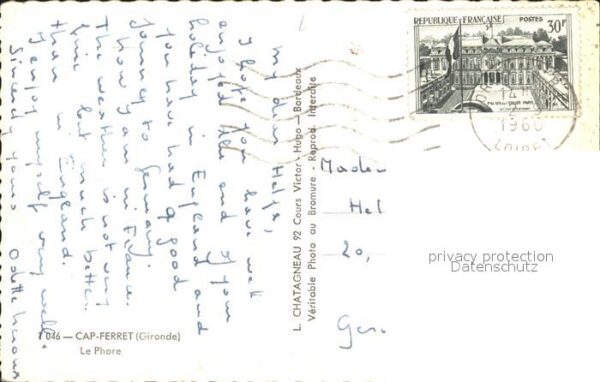 My dear Helga,
I hope you have well
enjoyed the end of your
holiday in England and
you have had a good
journey to Germany.
now I am in France.
The weather is not very
fine but much better
than in England.
I enjoy myself very well.
Sincerely yours Odette
7 046 — CAP-FERRET (Gironde)
Le Phare
L. CHATAGNEAU 92 Cours Victor-Hugo — Bordeaux
Véritable Photo au Bromure - Reprod. Interdite
RÉPUBLIQUE FRANÇAISE POSTES
30F
14
1960
LOIRET
Hel
20,
privacy protection
Datenschutz
Ger